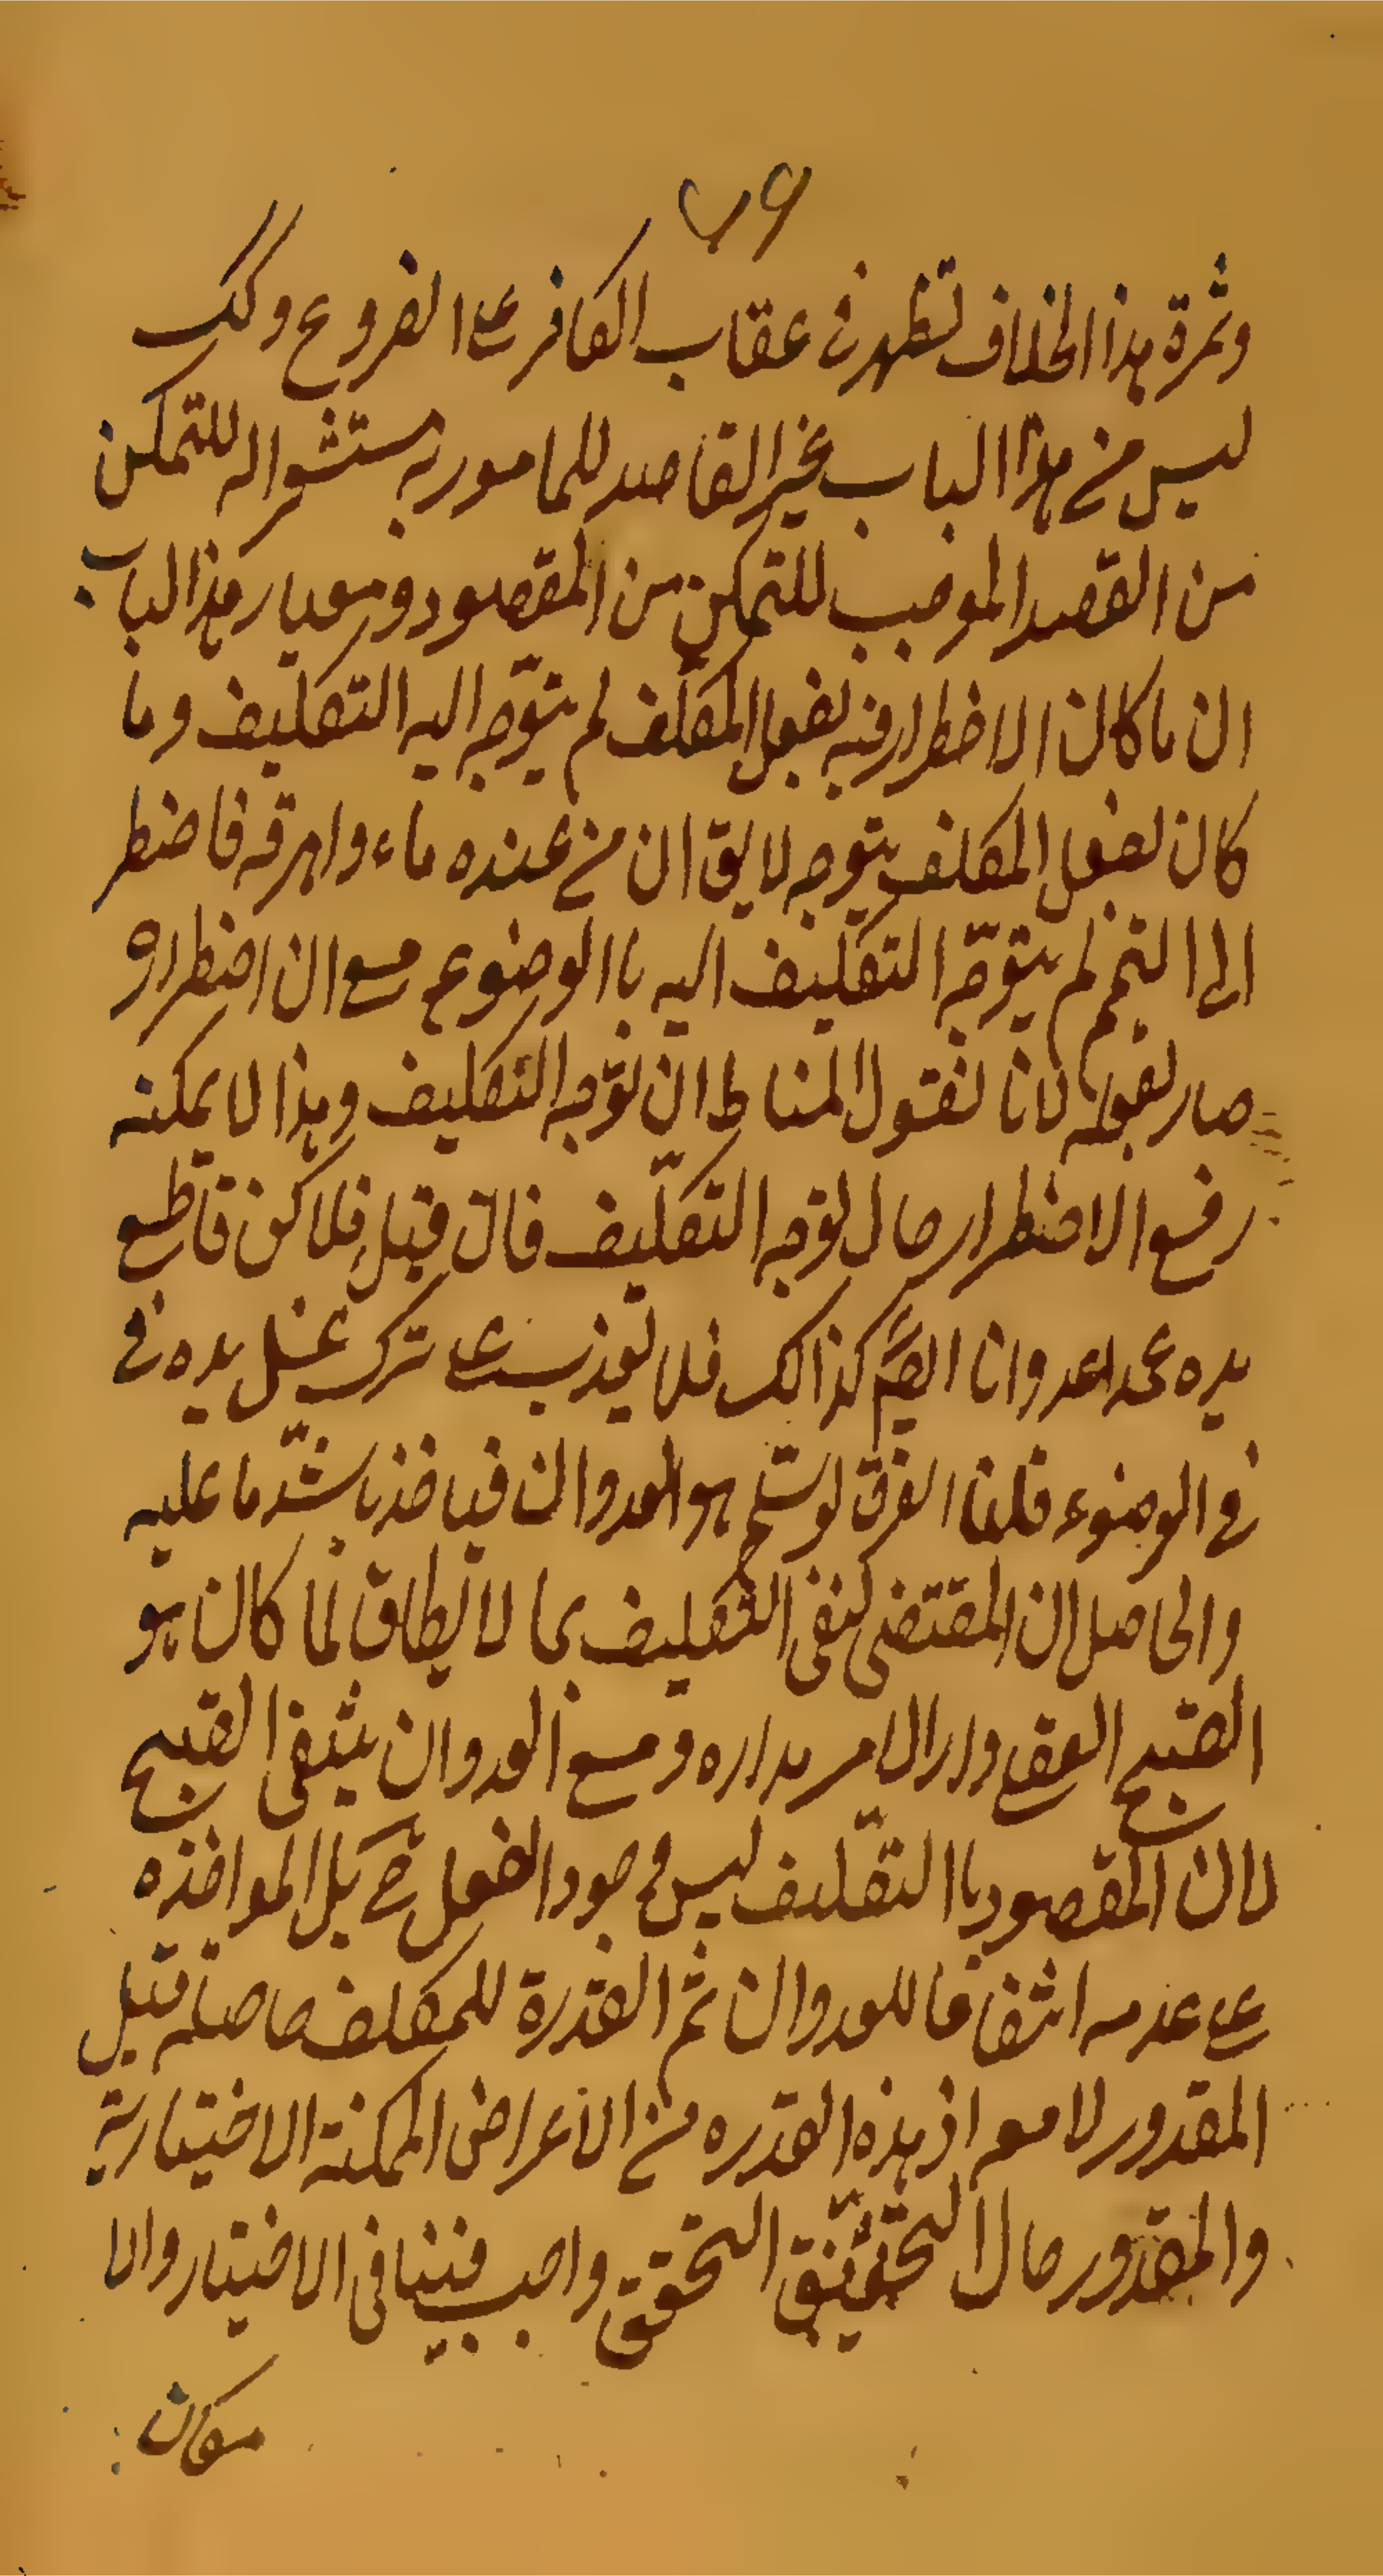 ٧٩
وثمرة هذا الخلاف تظهر فى عقاب الكافر على الفروع وكك
ليس من هذا الباب القاصد للمامور به للتمكن
من القصد الموجب للتمكن من المقصود ومعيار هذا الباب
ان ما كان الاضطرار فيه بفعل المكلف لم يتوجه اليه التكليف وما
كان لفعل المكلف يتوجه لا يق ان من عنده ماء واهرقه فاضطر
الى التيمم لم يتوجه التكليف اليه باالوضوع مع ان اضطراره
صار بفعله لانا نقول المناط ان توجه التكليف وهذا لا يمكنه
رفع الاضطرار حال توجه التكليف فان قيل فلا كن قاطع
يده عدوانا ايضً كذالك فلا يعذب على ترك غسل يده فى
فى الوضوء قلنا الفرق لو سلم هو العدوان فياخذ باشدّ ما عليه
والحاصل ان المقتضى لنفى التكليف بما لا يطاق لما كان هو
القبح العقلى دار الامر مداره ومع العدوان ينتفى القبح
لان المقصود باالتكليف ليس وجود الفعل ح بل المواخذه
على عدمه للعدوان ثم القدرة للمكلف حاصله قبل
المقدور لا معه اذ هذه القدره من الاعراض الممكنة الاختيارية
والمقدور حال التحقق واجب فينافى الاختيار والا
مكان